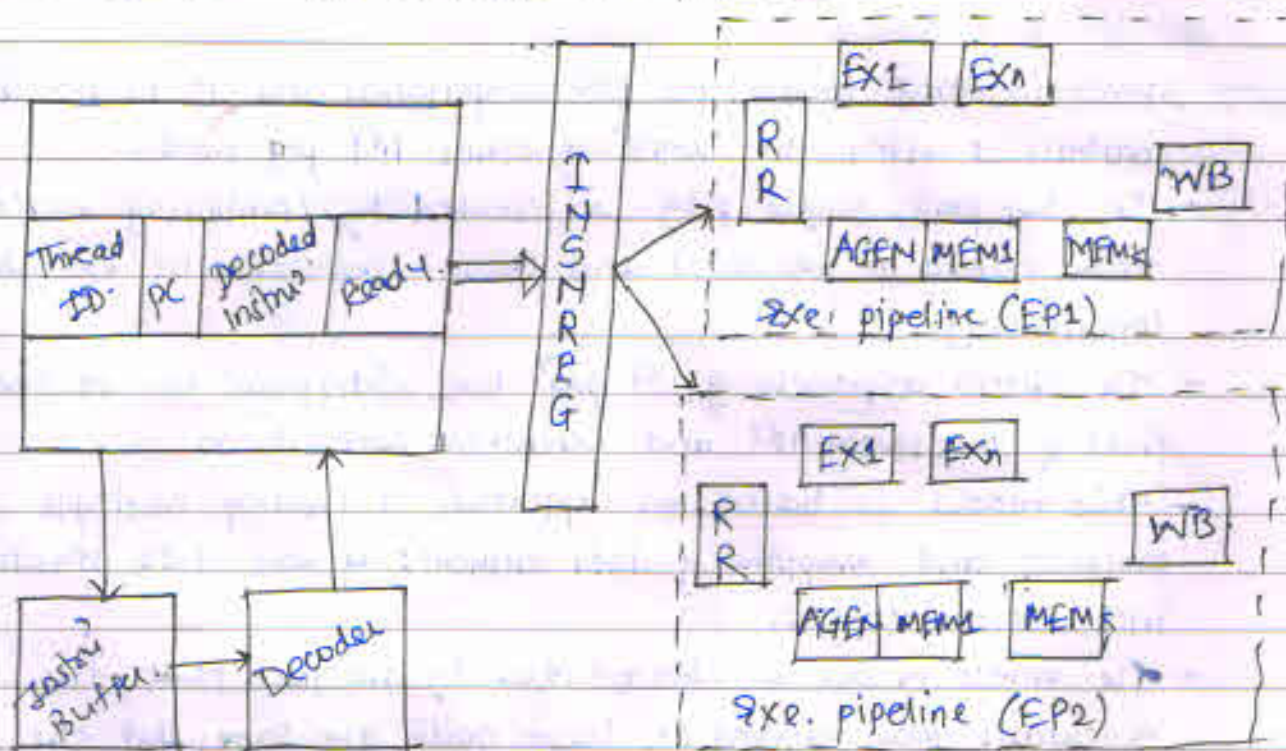 Thread ID.
PC
Decoded instruⁿ
Ready.
Instruⁿ Buffer
Decoder
INSNREG
EX1
EXn
RR
WB
AGEN
MEM1
MEMk
Exe. pipeline (EP1)
EX1
EXn
RR
WB
AGEN
MEM1
MEMk
Exe. pipeline (EP2)